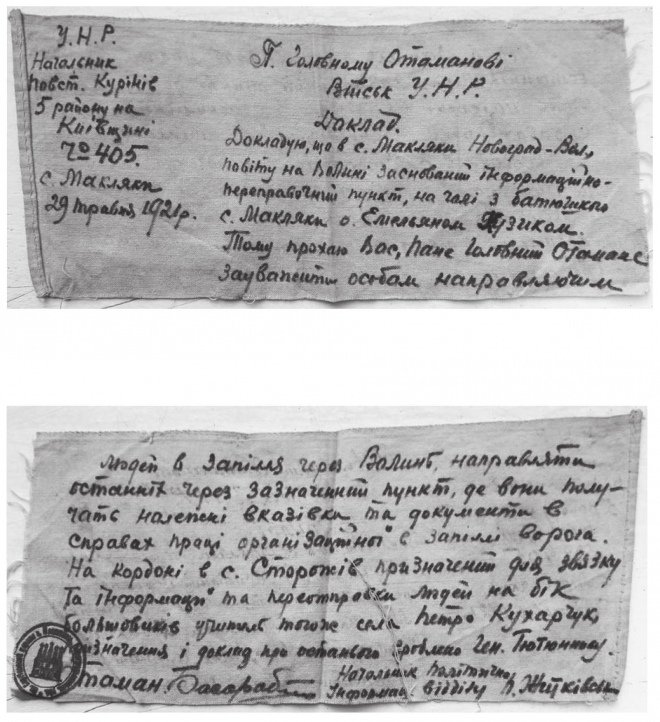 У.Н.Р.
Начальник
Повст. Курінів
5 району на
Київщині
№ 405.
с. Макляки
29 травня 1921р.
П. Головному Отаманові
Військ У.Н.Р.
Доклад.
Докладую, що в с. Макляки Новоград-Вол.,
повіту на Волині заснований інформаційно-
переправочний пункт, на чолі з батюшкою
с. Макляки о. Емельяном
Тому прохаю Вас, Пане Головний Отамане
зауважити особам направляючим
людей в запілля через Волинь, направляти
останніх через зазначений пункт, де вони полу-
чать належні вказівки та документи в
справах праці організаційної в запіллі ворога.
На кордоні в с. Сторожів призначений для звязку
та інформації та переотправки людей на бік
большовиків учитель того ж села Петро Кухарчук,
призначення і доклад про останнього зроблено Ген. Тютюннику.
Отаман
Начальник Політично
Інформац. відділу